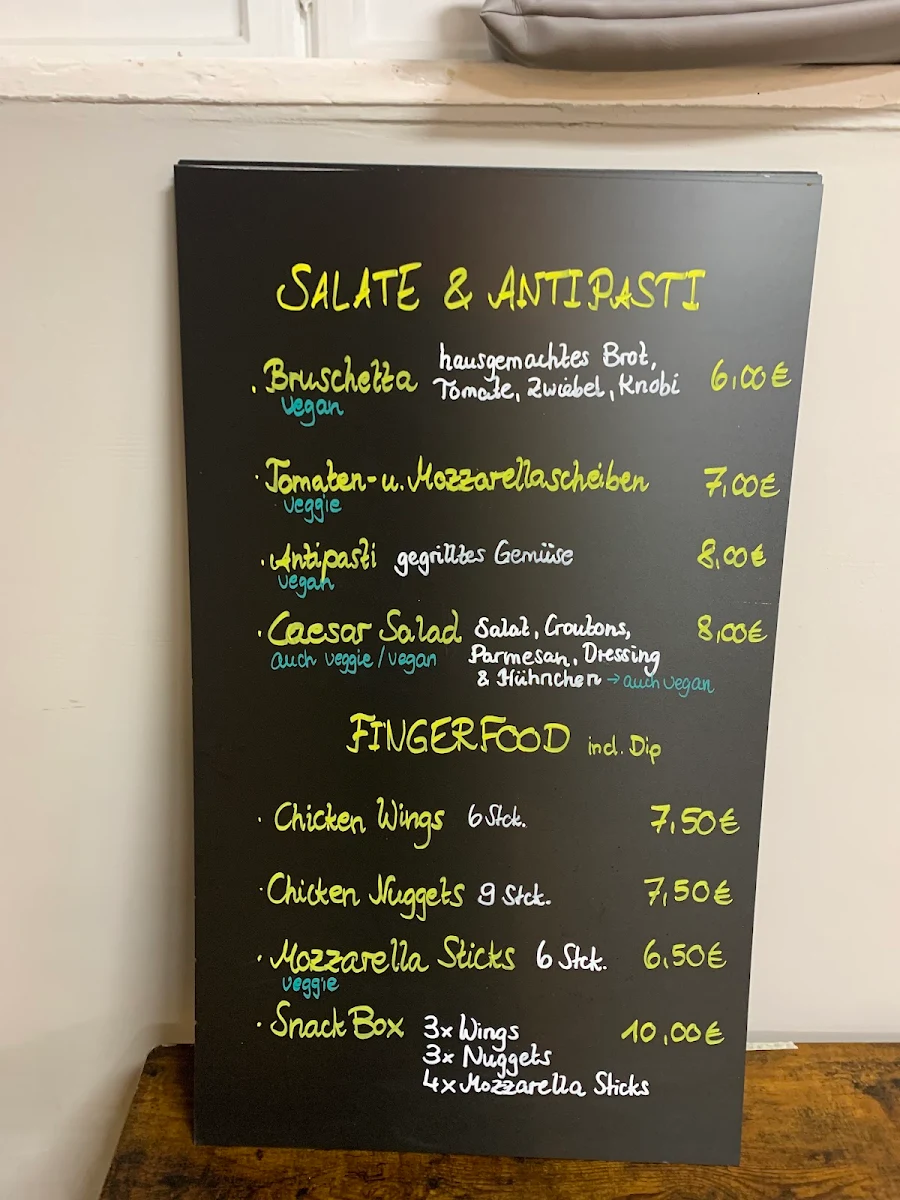 SALATE & ANTIPASTI
· Bruschetta hausgemachtes Brot, 6,00€
Tomate, Zwiebel, Knobi
vegan
· Tomaten- u. Mozzarellascheiben 7,00€
veggie
· Antipasti gegrilltes Gemüse 8,00€
vegan
· Caesar Salad Salat, Croutons, 8,00€
auch veggie / vegan Parmesan, Dressing
& Hühnchen → auch vegan
FINGERFOOD incl. Dip
· Chicken Wings 6 Stck. 7,50€
· Chicken Nuggets 9 Stck. 7,50€
· Mozzarella Sticks 6 Stck. 6,50€
veggie
· Snack Box 3x Wings 10,00€
3x Nuggets
4x Mozzarella Sticks